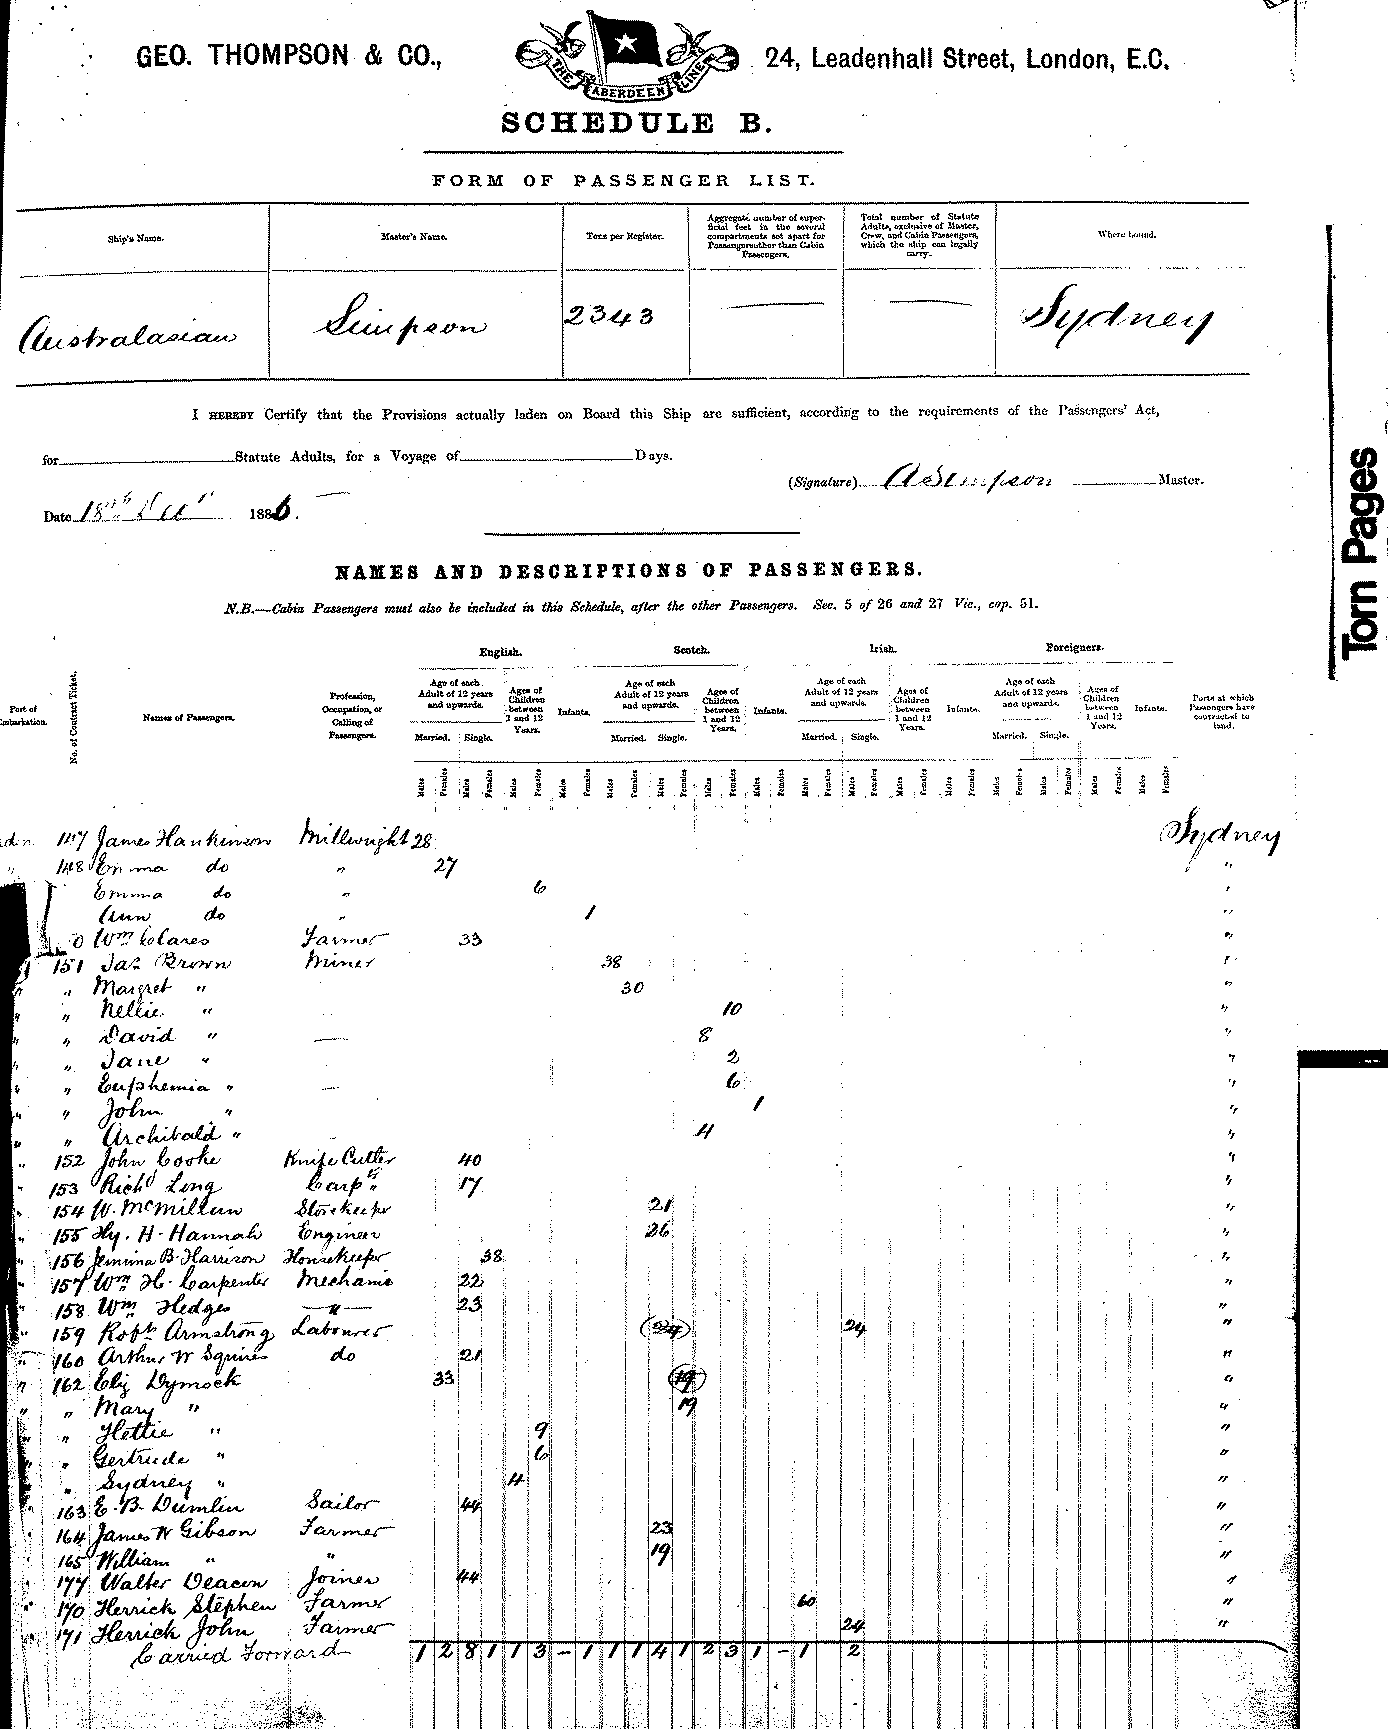 GEO. THOMPSON & CO., THE ABERDEEN LINE 24, Leadenhall Street, London, E.C.
SCHEDULE B.
FORM OF PASSENGER LIST.
Ship's Name. Master's Name. Tons per Register. Aggregate number of superficial feet in the several compartments set apart for Passengers other than Cabin Passengers. Total number of Statute Adults, exclusive of Master, Crew, and Cabin Passengers, which the ship can legally carry. Where bound.
Australasian Simpson 2343 Sydney
I HEREBY Certify that the Provisions actually laden on Board this Ship are sufficient, according to the requirements of the Passengers' Act,
for Statute Adults, for a Voyage of Days.
(Signature) A Simpson Master.
Date 18th Dec 1886.
Torn Pages
NAMES AND DESCRIPTIONS OF PASSENGERS.
N.B.—Cabin Passengers must also be included in this Schedule, after the other Passengers. Sec. 5 of 26 and 27 Vic., cap. 51.
English. Scotch. Irish. Foreigners.
Port of Embarkation. No. of Contract Ticket. Names of Passengers. Profession, Occupation, or Calling of Passengers. Age of each Adult of 12 years and upwards. Ages of Children between 1 and 12 Years. Infants. Age of each Adult of 12 years and upwards. Ages of Children between 1 and 12 Years. Infants. Age of each Adult of 12 years and upwards. Ages of Children between 1 and 12 Years. Infants. Age of each Adult of 12 years and upwards. Ages of Children between 1 and 12 Years. Infants. Ports at which Passengers have contracted to land.
Married. Single. Married. Single. Married. Single. Married. Single.
Males Females Males Females Males Females Males Females Males Females Males Females Males Females Males Females Males Females Males Females Males Females Males Females Males Females Males Females Males Females Males Females
147 James Hankinson Millwright 28 Sydney
" 148 Emma do " 27 "
Emma do " 6 "
Ann do " 1 "
0 Wm Clares Farmer 33 "
151 Jas Brown Miner 38 "
" " Margret " 30 "
" " Nellie " 10 "
" " David " — 8 "
" " Jane " 2 "
" " Euphemia " — 6 "
" " John " 1 "
" " Archibald " 4 "
" 152 John Cooke Knife Cutter 40 "
" 153 Richd Long Carpr 17 "
" 154 W. McMillan Storekeeper 21 "
" 155 Hy. H. Hannah Engineer 26 "
" 156 Jemima B. Harrison Housekeeper 38 "
" 157 Wm H. Carpenter Mechanic 22 "
" 158 Wm Hedges — " — 23 "
" 159 Robt Armstrong Labourer 24 24 "
" 160 Arthur W Squires do 21 "
" 162 Eliz Dymock 33 19 "
" " Mary " 19 "
" " Hettie " 9 "
" " Gertrude " 6 "
" " Sydney " 4 "
" 163 E. B. Dumlin Sailor 44 "
" 164 James W Gibson Farmer 23 "
" 165 William " " 19 "
" 177 Walter Deacon Joiner 44 "
" 170 Herrick Stephen Farmer 60 "
" 171 Herrick John Farmer 24 "
Carried Forward 1 2 8 1 1 3 - 1 1 1 4 1 2 3 1 - 1 2